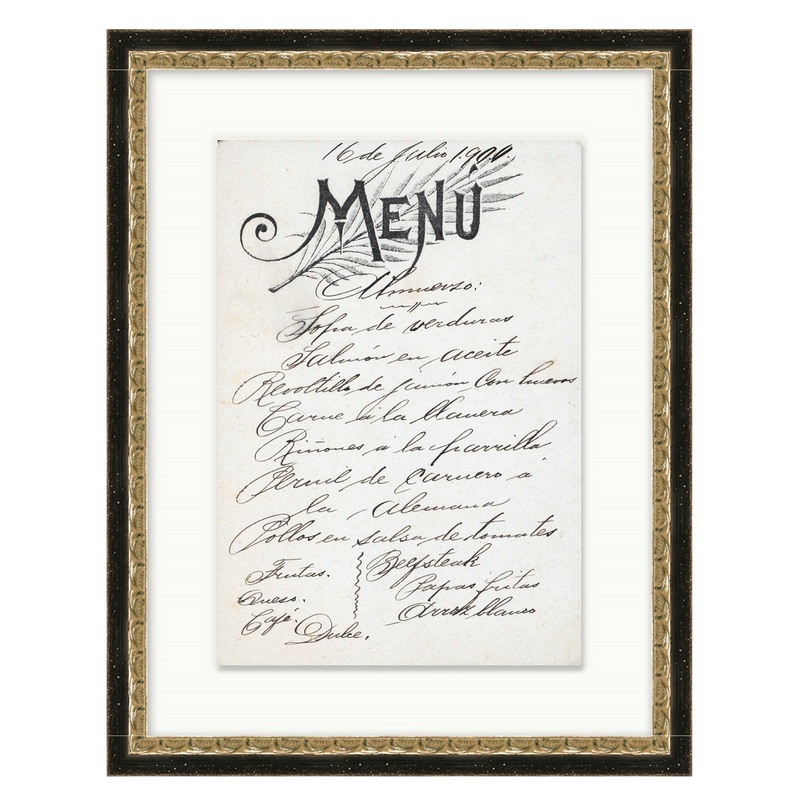 16 de Julio 1900.
MENÚ
Almuerzo:
Sopa de verduras
Salmón en aceite
Revoltillo de jamón con huevos
Carne á la llanera
Riñones á la parrilla
Pernil de carnero á
la Alemana
Pollos en salsa de tomates
Frutas.
Queso.
Café.
Dulce.
Beefsteak
Papas fritas
Arroz blanco